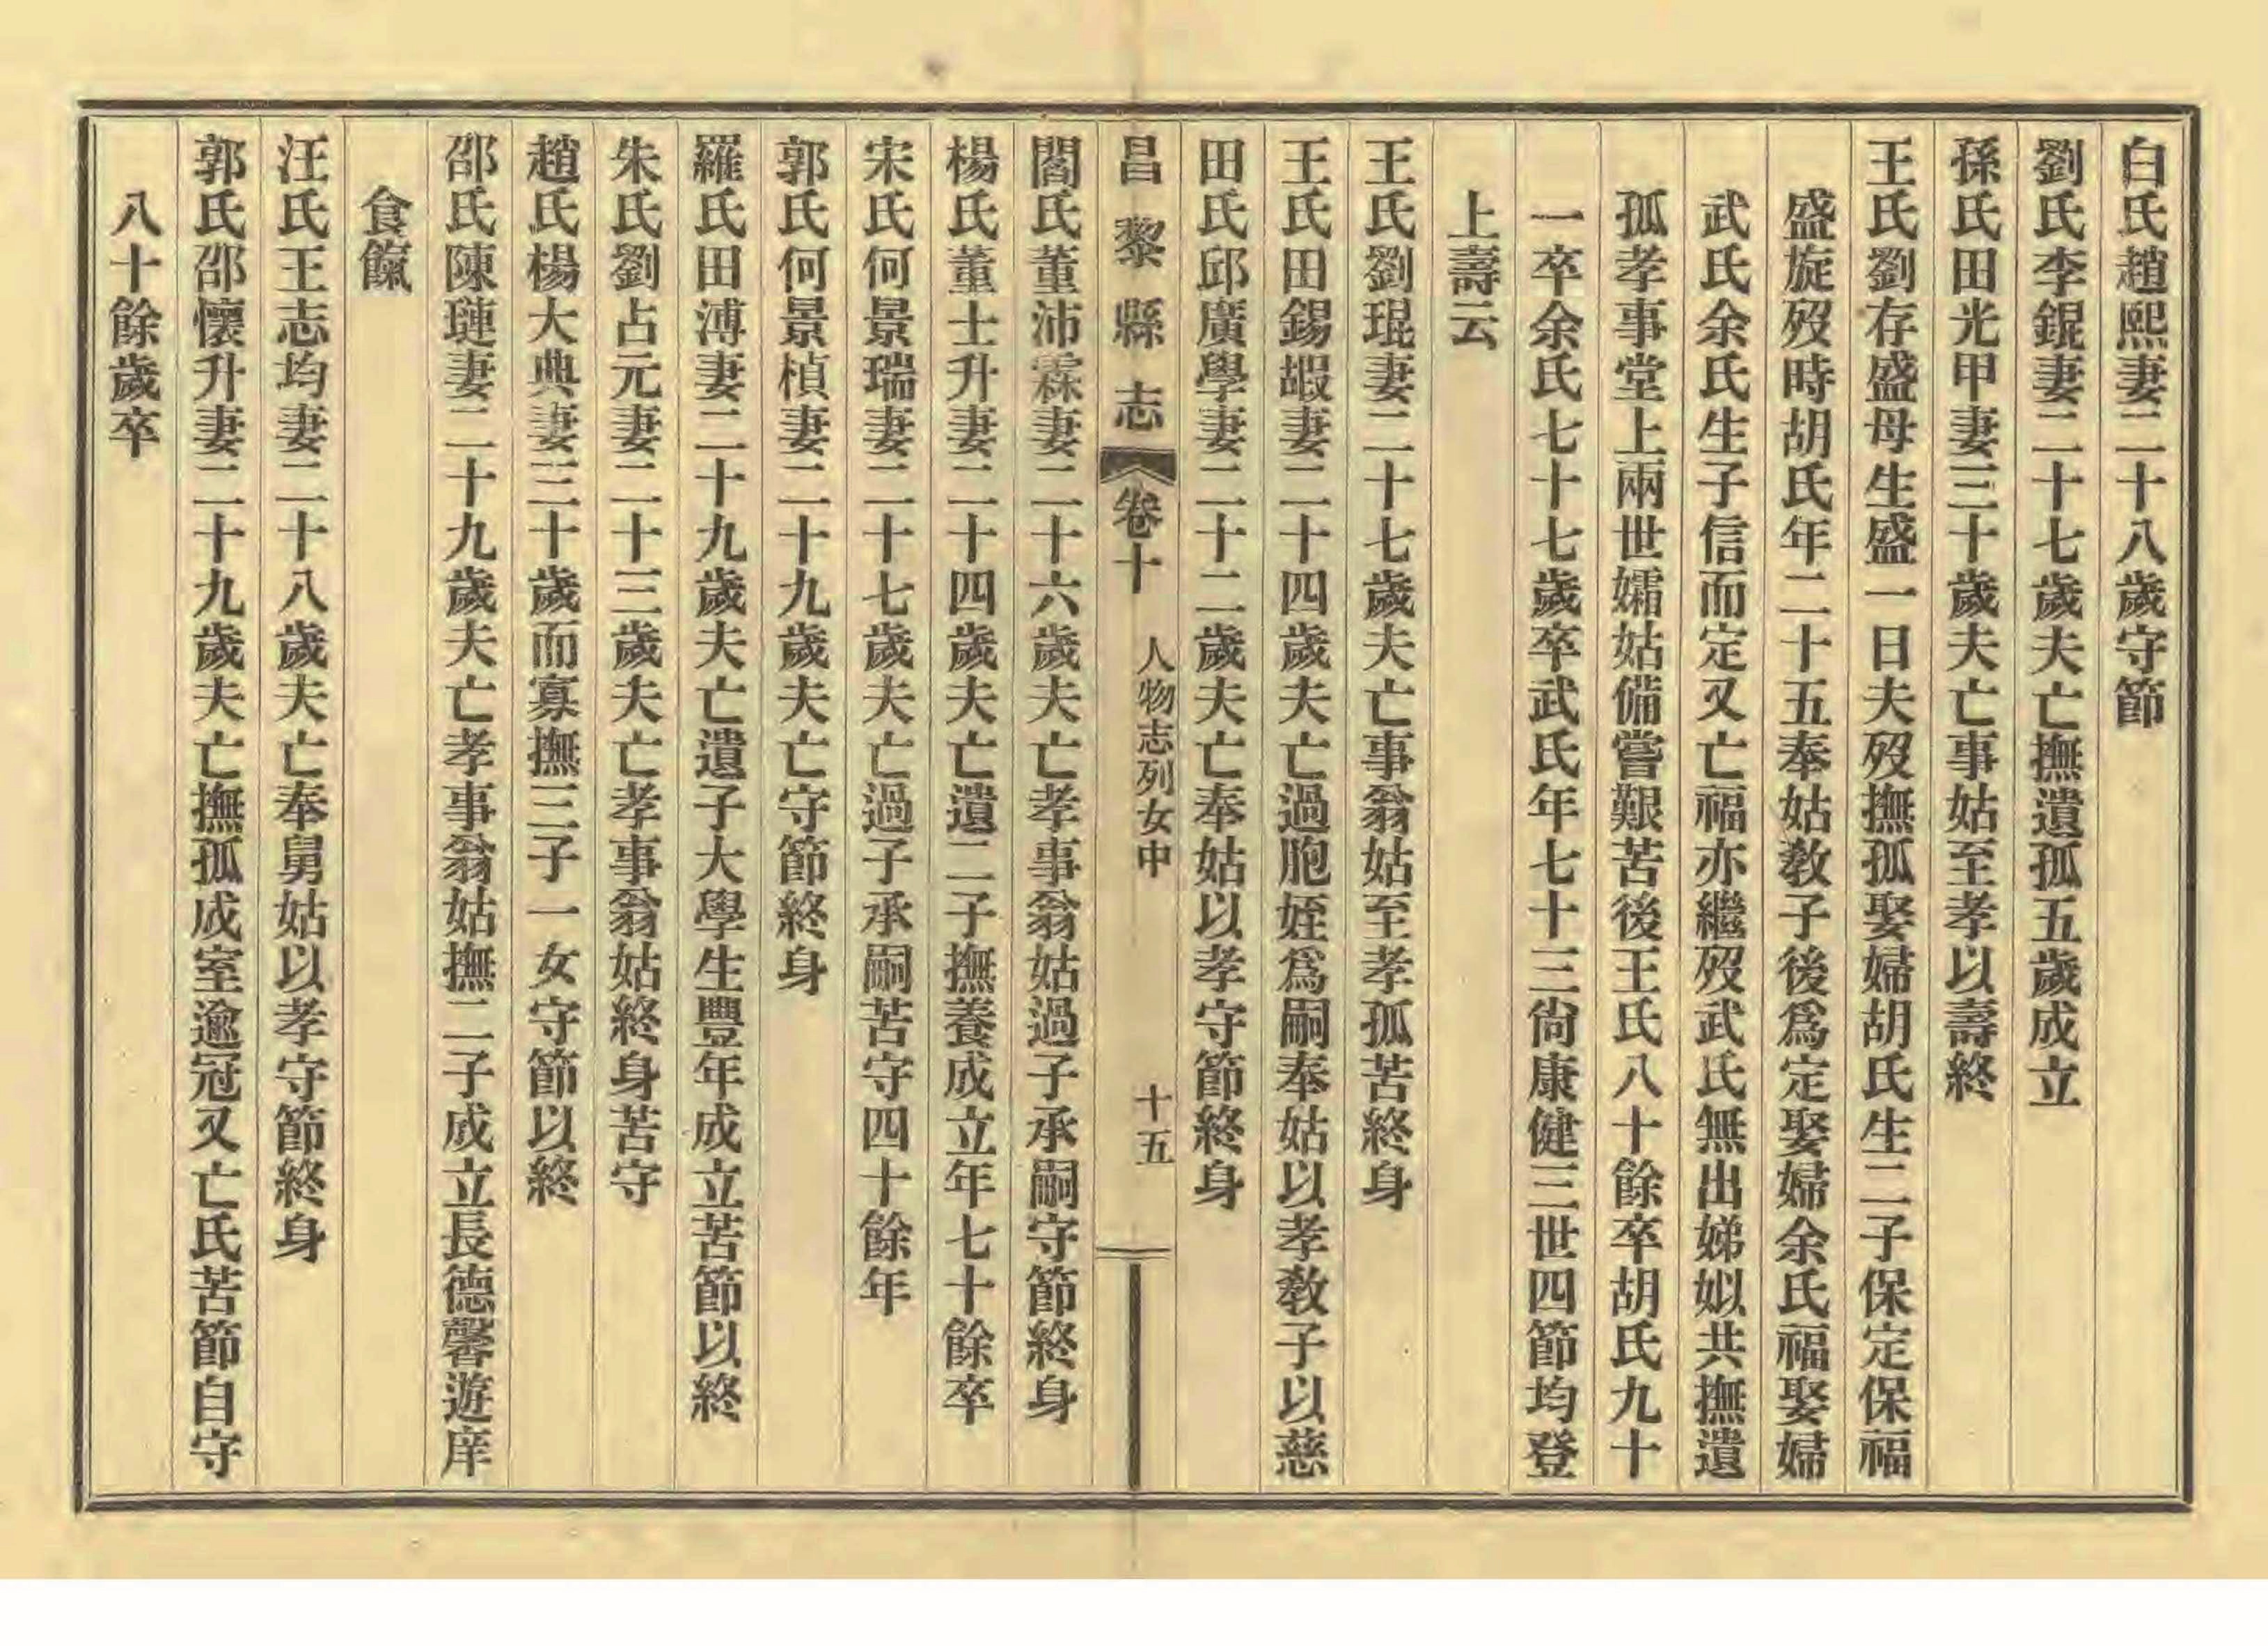 白氏趙熙妻二十八歲守節
劉氏李錕妻二十七歲夫亡撫遺孤五歲成立
孫氏田光甲妻三十歲夫亡事姑至孝以壽終
王氏劉存盛母生盛一日夫歿撫孤娶婦胡氏生二子保定保福
盛旋歿時胡氏年二十五奉姑教子後爲定娶婦余氏福娶婦
武氏余氏生子信而定又亡福亦繼歿武氏無出娣姒共撫遺
孤孝事堂上兩世孀姑備嘗艱苦後王氏八十餘卒胡氏九十
一卒余氏七十七歲卒武氏年七十三尙康健三世四節均登
上壽云
王氏劉琨妻二十七歲夫亡事翁姑至孝孤苦終身
王氏田錫嘏妻二十四歲夫亡過胞姪爲嗣奉姑以孝教子以慈
田氏邱廣學妻二十二歲夫亡奉姑以孝守節終身
昌黎縣志 卷十 人物志列女中 十五
閻氏董沛霖妻二十六歲夫亡孝事翁姑過子承嗣守節終身
楊氏董士升妻二十四歲夫亡遺二子撫養成立年七十餘卒
宋氏何景瑞妻二十七歲夫亡過子承嗣苦守四十餘年
郭氏何景楨妻二十九歲夫亡守節終身
羅氏田溥妻二十九歲夫亡遺子大學生豐年成立苦節以終
朱氏劉占元妻二十三歲夫亡孝事翁姑終身苦守
趙氏楊大典妻三十歲而寡撫三子一女守節以終
邵氏陳璉妻二十九歲夫亡孝事翁姑撫二子成立長德馨遊庠
食餼
汪氏王志均妻二十八歲夫亡奉舅姑以孝守節終身
郭氏邵懷升妻二十九歲夫亡撫孤成室逾冠又亡氏苦節自守
八十餘歲卒